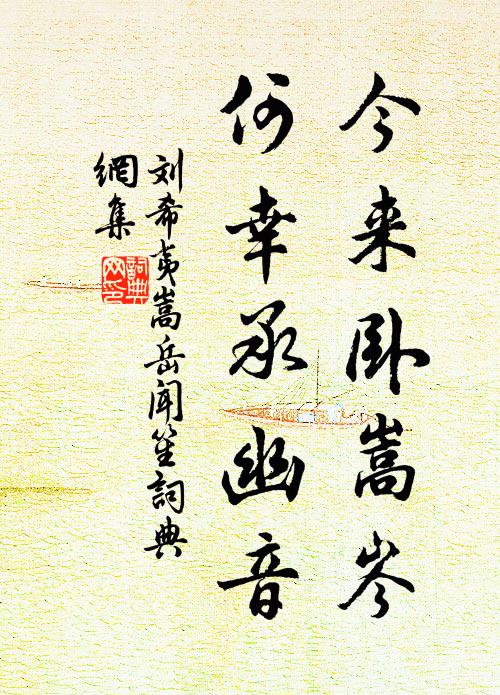 今来卧嵩岑
何幸承幽音
刘希夷嵩岳闻笙詞典
網集
詞典网印